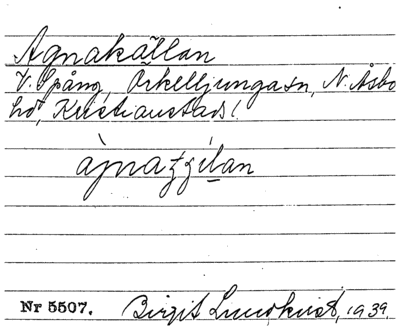 Agnakällan
V. Spång, Örkelljungasn, N. Åsbo
hd, Kristianstads l.
Nr 5507. Birgit Lundkvist, 1939.